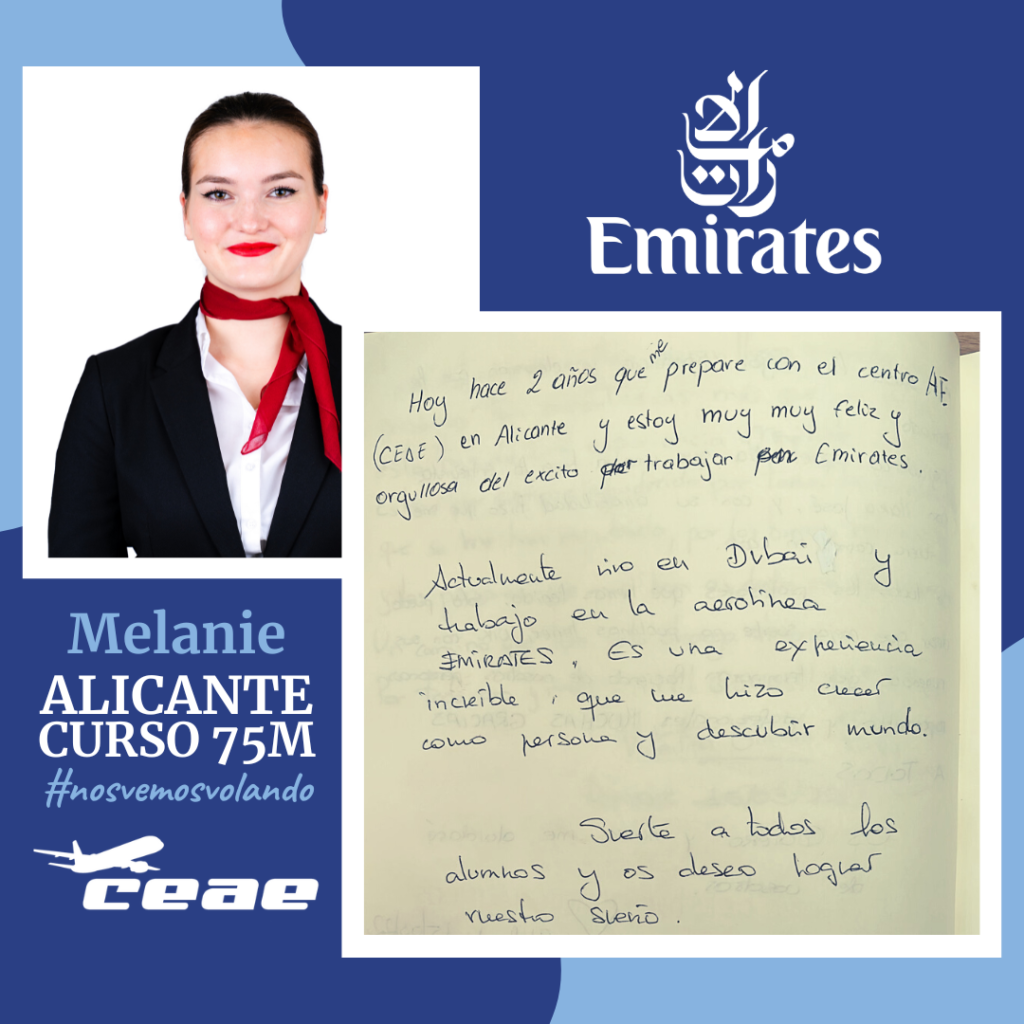 امارات
Emirates
Hoy hace 2 años que me prepare con el centro AF.
(CEAE) en Alicante y estoy muy muy feliz y
orgullosa del excito trabajar Emirates.
Actualmente vivo en Dubai y
trabajo en la aerolinea
EMIRATES. Es una experiencia
increíble, que me hizo crecer
como persona y descubrir mundo.
Suerte a todos los
alumnos y os deseo lograr
vuestro sueño.
Melanie
ALICANTE
CURSO 75M
#nosvemosvolando
ceae